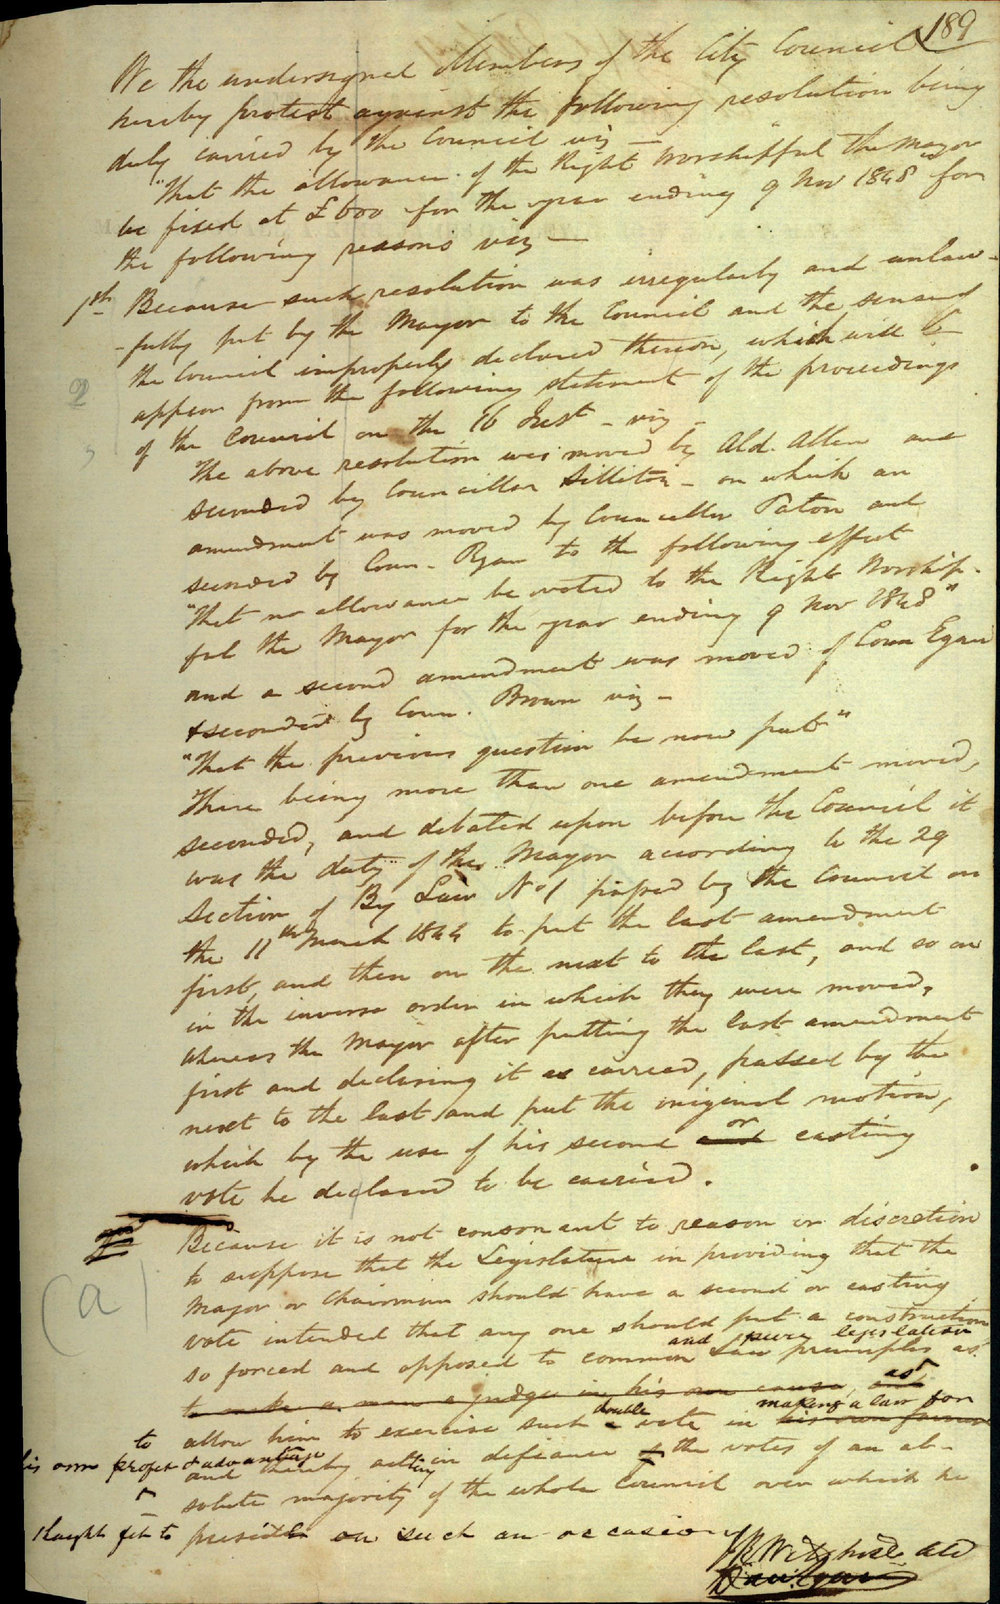 189
We the undersigned Members of the City Council
hereby protest against the following resolution being
duly carried by the Council viz —
"That the allowance of the Right Worshipful the Mayor
be fixed at £600 for the year ending 9 Nov 1848" for
the following reasons viz —
1st Because such resolution was irregularly and unlaw-
-fully put by the Mayor to the Council and the sense of
the Council improperly declared thereon, which will
appear from the following statement of the proceedings
of the Council on the 16 Inst - viz -
The above resolution was moved by Ald. Allen and
seconded by Councillor Sillitoe - on which an
amendment was moved by Councillor Paton and
seconded by Coun. Ryan to the following effect
"That no allowance be voted to the Right Worship-
ful the Mayor for the year ending 9 Nov 1848"
and a second amendment was moved of Coun Egan
& seconded by Coun. Brown viz -
"That the previous question be now put"
There being more than one amendment moved,
seconded, and debated upon before the Council it
was the duty of the Mayor according to the 29
Section of By Law No 1 passed by the Council on
the 11th March 1844 to put the last amendment
first, and then on the next to the last, and so on
in the inverse order in which they were moved,
whereas the Mayor after putting the last amendment
first and declaring it as carried, passed by the
next to the last and put the original motion,
or
which by the use of his second and casting
vote he declared to be carried.
Because it is not consonant to reason or discretion
to suppose that the Legislature in providing that the
(a)
Mayor or Chairman should have a second or casting
vote intended that any one should put a construction
and pure legislation
so forced and opposed to common Law principles as
to make a man a judge in his own cause, and
as
double making a law for
allow him to exercise such a vote in his own favour
to
his own profit & advantage
and thereby acting in defiance of the votes of an ab-
solute majority of the whole Council over which he
thought fit to preside on such an occasion
Ald